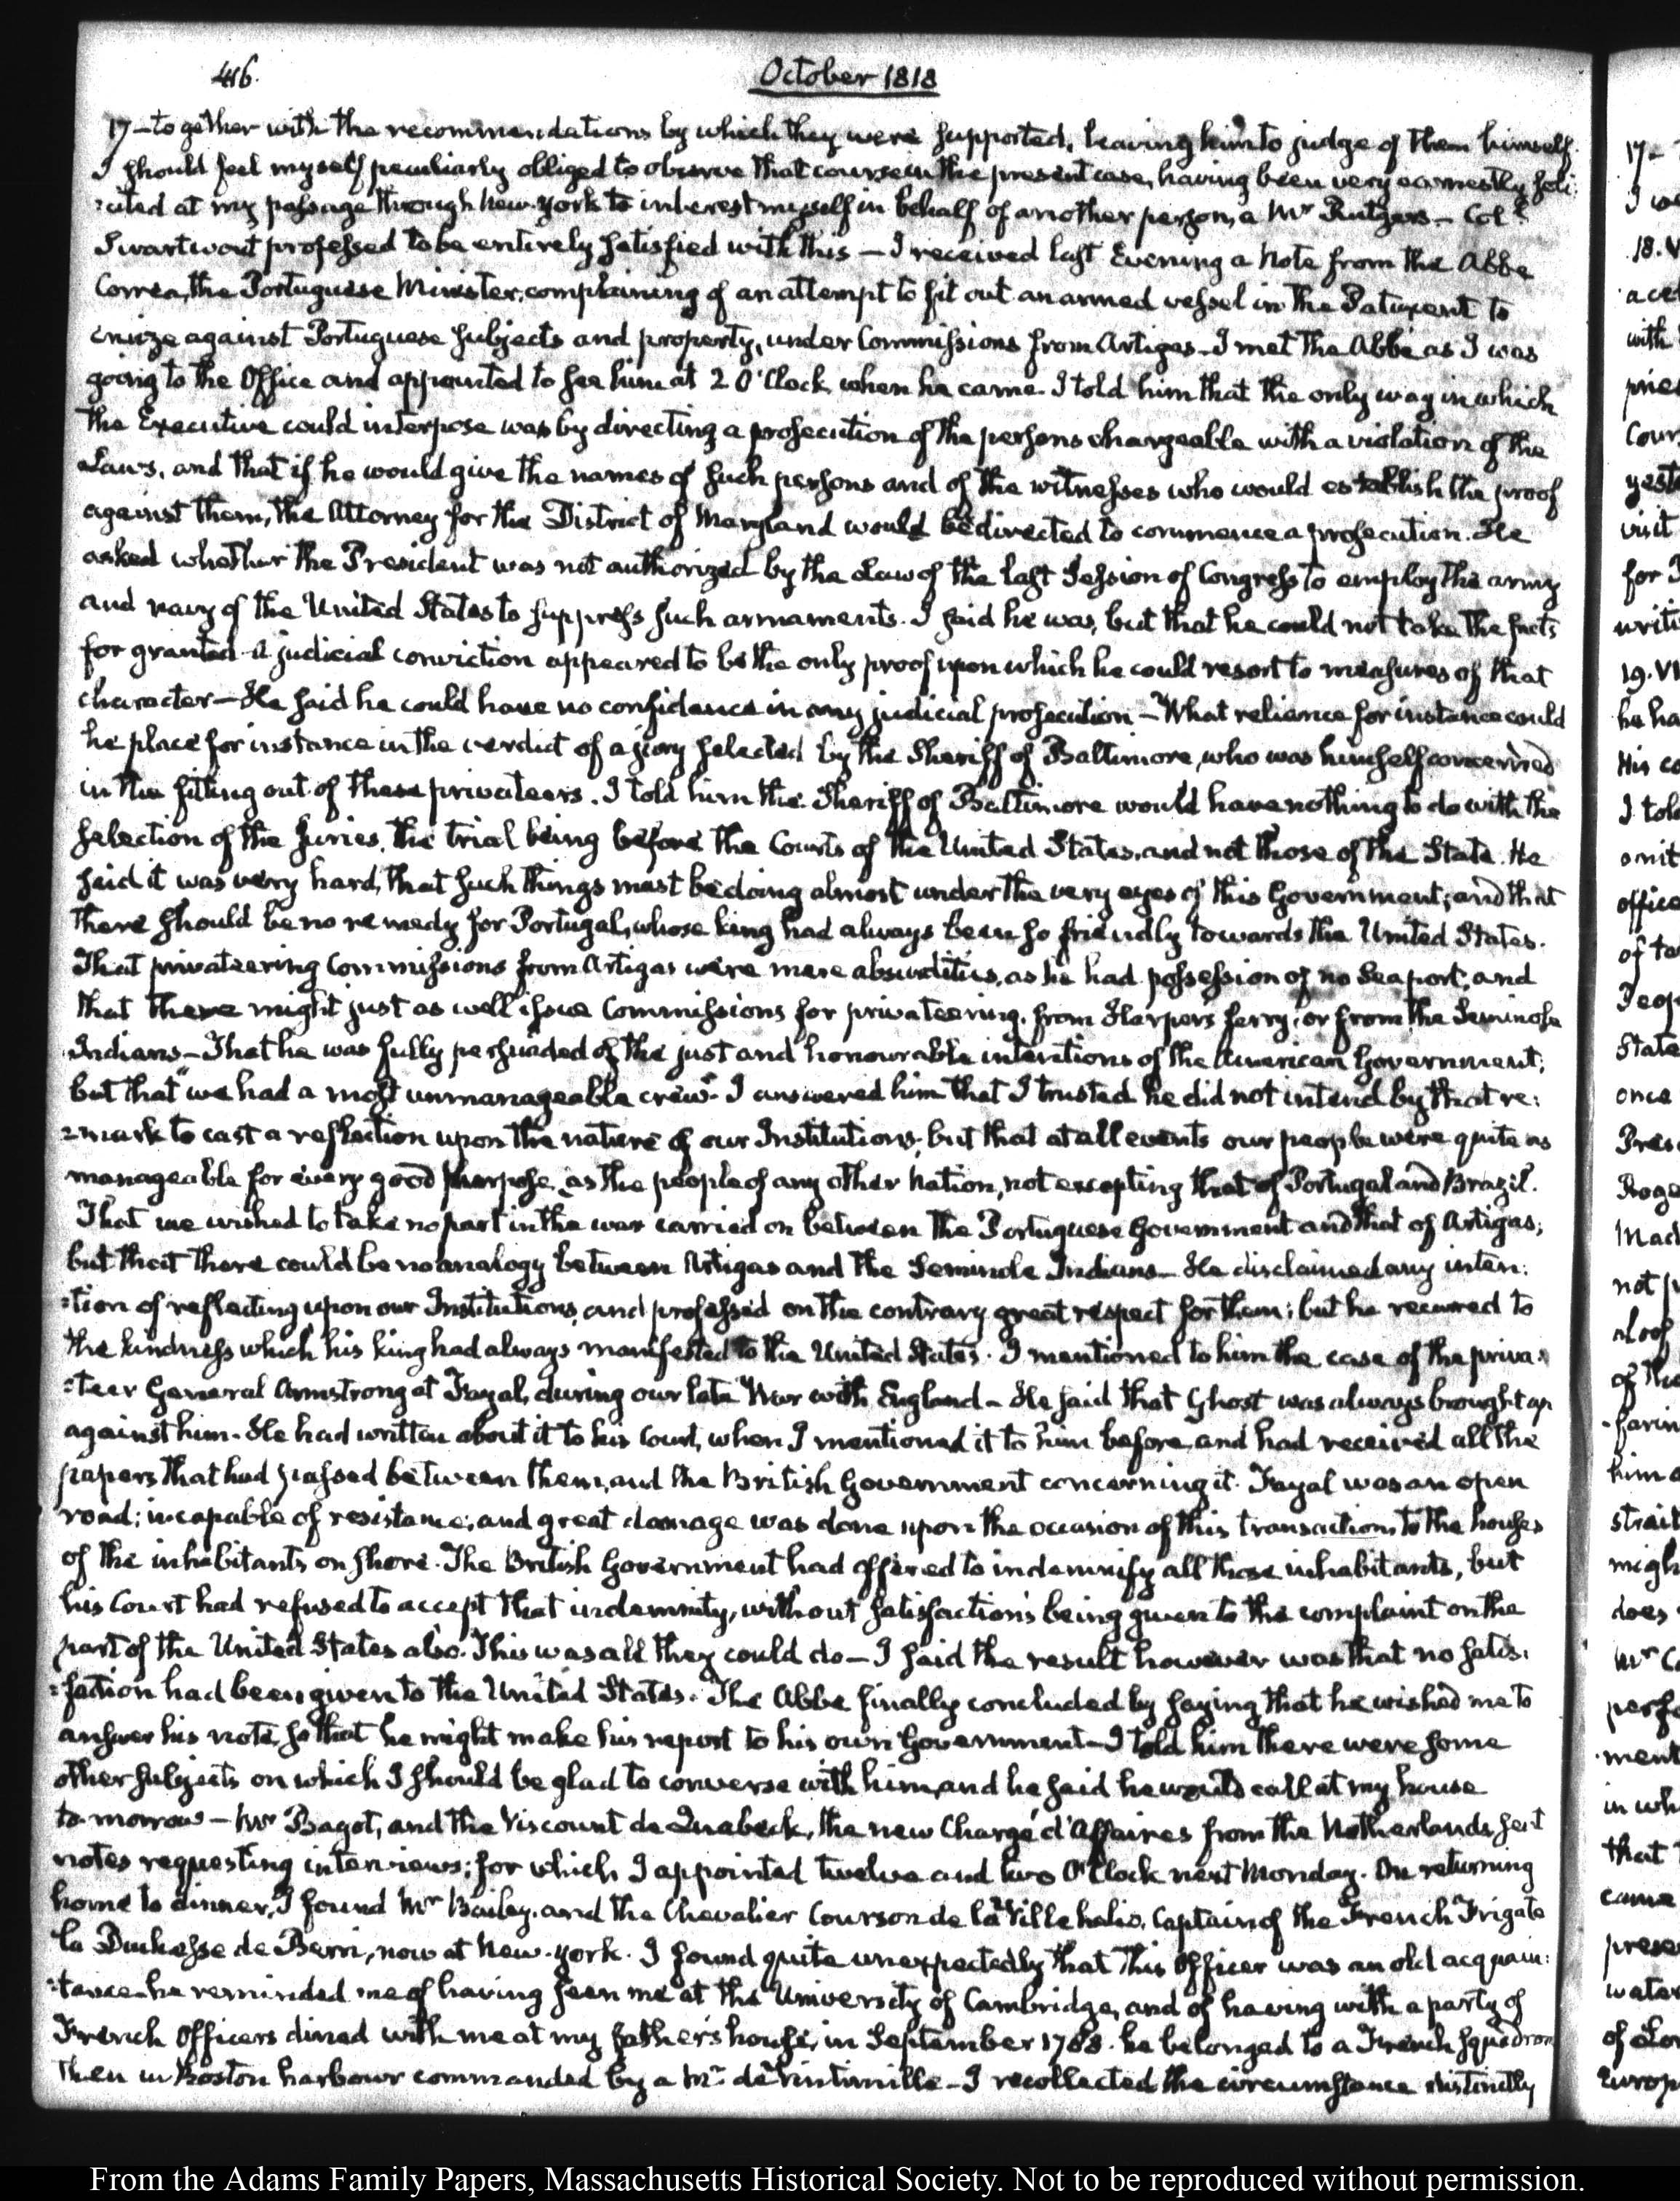 416.
October 1818
17 – together with the recommendations by which they were supported, leaving him to judge of them himself.
I should feel myself peculiarly obliged to observe that course in the present case, having been very earnestly soli:
:cited at my passage through New-York to interest myself in behalf of another person, a Mr Rutgers – Coll
Swartwout professed to be entirely satisfied with this – I received last Evening a Note from the Abbe
Correa, the Portuguese Minister, complaining of an attempt to fit out an armed vessel in the Patuxent to
cruize against Portuguese subjects and property, under Commissions from Artigas – I met the Abbé as I was
going to the Office and appointed to see him at 2 O'Clock when he came. I told him that the only way in which
the Executive could interpose was by directing a prosecution of the persons chargeable with a violation of the
Laws, and that if he would give the names of such persons and of the witnesses who would establish the proof
against them, the Attorney for the District of Maryland would be directed to commence a prosecution. He
asked whether the President was not authorized by the Law of the last Session of Congress to employ the army
and navy of the United States to suppress such armaments. I said he was, but that he could not take the facts
for granted. A judicial conviction appeared to be the only proof upon which he could resort to measures of that
character – He said he could have no confidence in any judicial prosecution – What reliance for instance could
he place for instance in the verdict of a jury selected by the Sheriff of Baltimore, who was himself concerned
in the fitting out of these privateers. I told him the Sheriff of Baltimore would have nothing to do with the
selection of the Juries, the trial being before the Courts of the United States, and not those of the State. He
said it was very hard, that such things must be doing almost under the very eyes of this Government; and that
there should be no remedy for Portugal, whose king had always been so friendly towards the United States.
That privateering Commissions from Artigas were mere absurdities, as he had possession of no Seaport, and
that there might just as well issue Commissions for privateering, from Harpers ferry, or from the Seminole
Indians – That he was fully persuaded of the just and honourable intentions of the American Government;
but that "we had a most unmanageable crew." I answered him that I trusted he did not intend by that re:
:mark to cast a reflection upon the nature of our Institutions; but that at all events our people were quite as
manageable for every good purpose, as the people of any other Nation, not excepting that of Portugal and Brazil.
That we wished to take no part in the war carried on between the Portuguese Government and that of Artigas;
but that there could be no analogy between Artigas and the Seminole Indians – He disclaimed any inten:
:tion of reflecting upon our Institutions, and professed on the contrary great respect for them; but he recurred to
the kindness which his king had always manifested to the United States. I mentioned to him the case of the priva:
:teer General Armstrong at Fayal, during our late War with England – He said that Ghost was always brought up
against him. He had written about it to his Court, when I mentioned it to him before, and had received all the
papers that had passed between them, and the British Government concerning it. Fayal was an open
road; incapable of resistance; and great damage was done upon the occasion of this transaction to the houses
of the inhabitants on shore. The British Government had offered to indemnify all those inhabitants, but
his Court had refused to accept that indemnity, without satisfaction's being given to the complaint on the
part of the United States also. This was all they could do – I said the result however was that no satis:
:faction had been given to the United States. The Abbe finally concluded by saying that he wished me to
answer his note, so that he might make his report to his own Government – I told him there were some
other subjects on which I should be glad to converse with him, and he said he would call at my house
to-morrow – Mr Bagot, and the Viscount de Quabeck, the new Chargé d'Affaires from the Netherlands, sent
notes requesting interviews; for which I appointed twelve and two O'Clock next Monday. On returning
home to dinner, I found Mr Bailey, and the Chevalier Courson de la Ville helio, Captain of the French Frigate
la Duchesse de Berri, now at New-York. I found quite unexpectedly that this Officer was an old acquain:
:tance – he reminded me of having seen me at the University of Cambridge, and of having with a party of
French Officers dined with me at my father's house, in September 1788. he belonged to a French squadron
then in Boston harbour commanded by a Mr de Vintimille – I recollected the circumstance distinctly
17 –
18.
with
Cour
visit
for
19.
he ha
His co
I told
office
State
once
not p
of the
him a
strait
might
does
Mr C
ment
in wh
that
came
prese
water
Europ
From the Adams Family Papers, Massachusetts Historical Society. Not to be reproduced without permission.